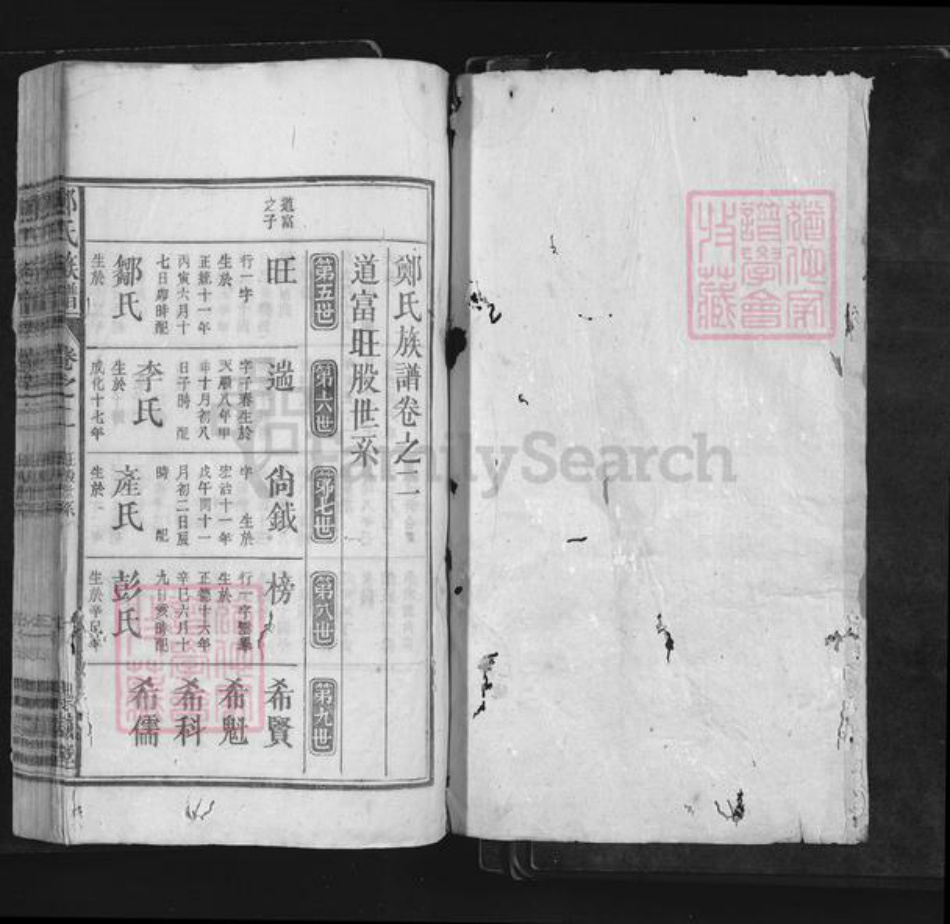 鄭氏族譜卷之二
道富旺股世系
道富之子
第五世
旺
行一字
生於
正統十一年
丙寅六月十
七日卯時配
鄒氏
生於
第六世
遄
字子春生於
天順八年甲
申十月初八
日子時 配
李氏
生於
成化十七年
第七世
尙鉞
字 生於
宏治十一年
戊午閏十一
月初二日辰
時 配
產氏
生於
第八世
榜
生於
正德十六年
辛巳六月十
九日亥時配
彭氏
生於辛巳年
第九世
希賢
希魁
希科
希儒
鄭氏族譜
卷之二
旺股世系
猶他家
譜學會
收藏
FamilySearch